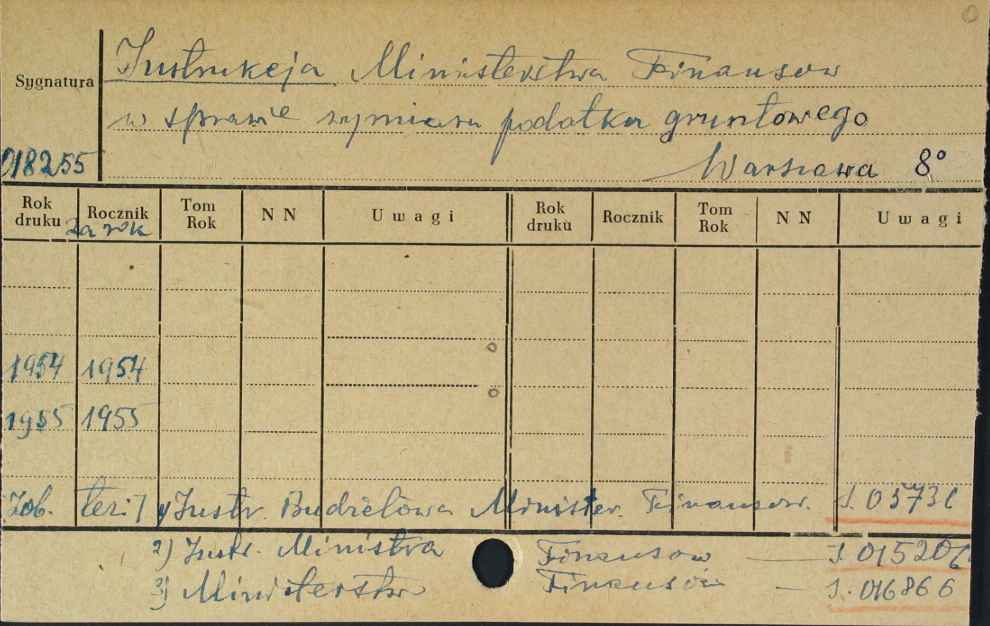 Instrukcja Ministerstwa Finansow
Sygnatura
w sprawie wymiaru podatku gruntowego
018255
Warszawa 8°
Rok druku Rocznik Tom Rok N N Uwagi Rok druku Rocznik Tom Rok N N Uwagi
za rok
1954 1954
1955 1955
Zob. też: 1) Instr. Budżetowa Minister. Finansow.
2) Instr. Ministra Finansow — I. 015206
3) Ministerstw Finansów — I. 016866